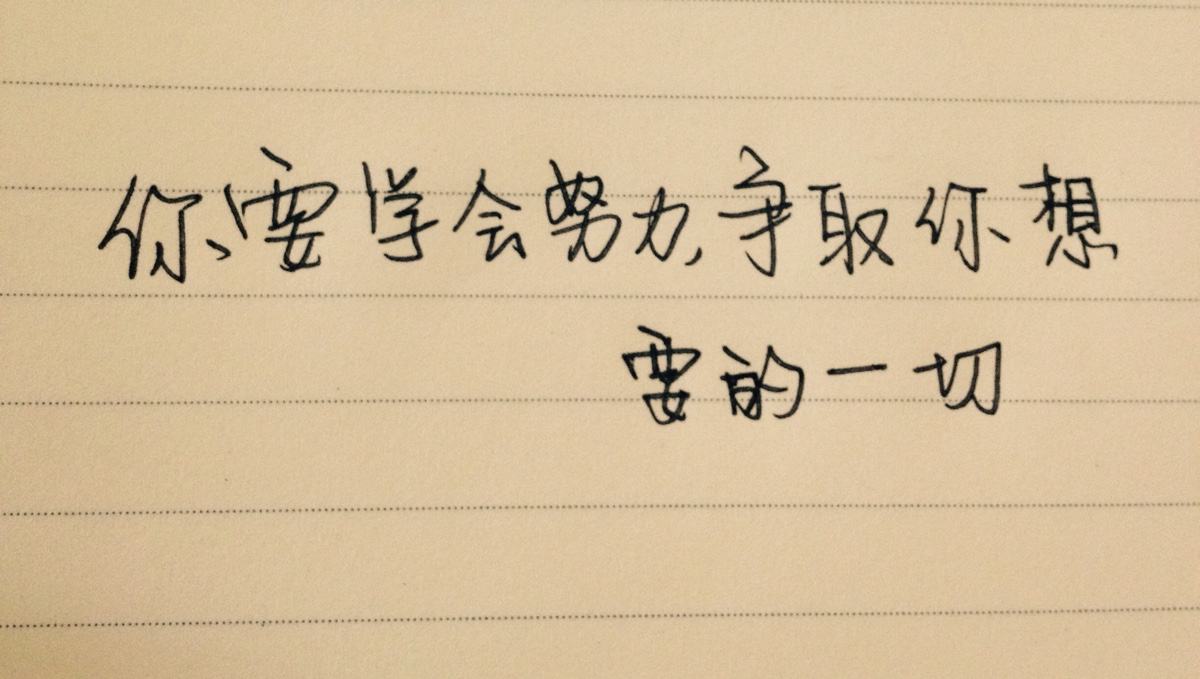 你要学会努力,争取你想
要的一切